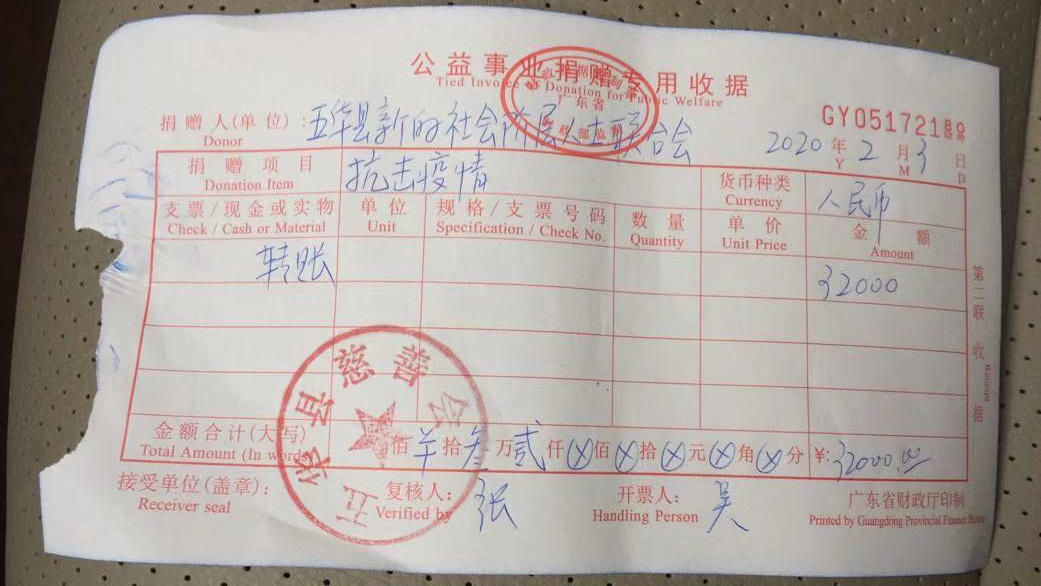 公益事业捐赠专用收据
Tied Invoice of Donation for Public Welfare
广东省
GY051721
捐赠人(单位):五华县新的社会阶层人士联合会 2020年2月3日
Donor Y M D
捐赠项目 抗击疫情 货币种类 人民币
Donation Item Currency
支票/现金或实物 单位 规格/支票号码 数量 单价 金额
Check / Cash or Material Unit Specification / Check No. Quantity Unit Price Amount
转账 32000
第二联 收据
Receipt
金额合计(大写) 佰 拾叁万贰仟⊗佰⊗拾⊗元⊗角⊗分 ¥:32000.00
Total Amount (In words)
接受单位(盖章): 复核人:张 开票人:吴 广东省财政厅印制
Receiver seal Verified by Handling Person Printed by Guangdong Provincial Finance
五华县慈善会